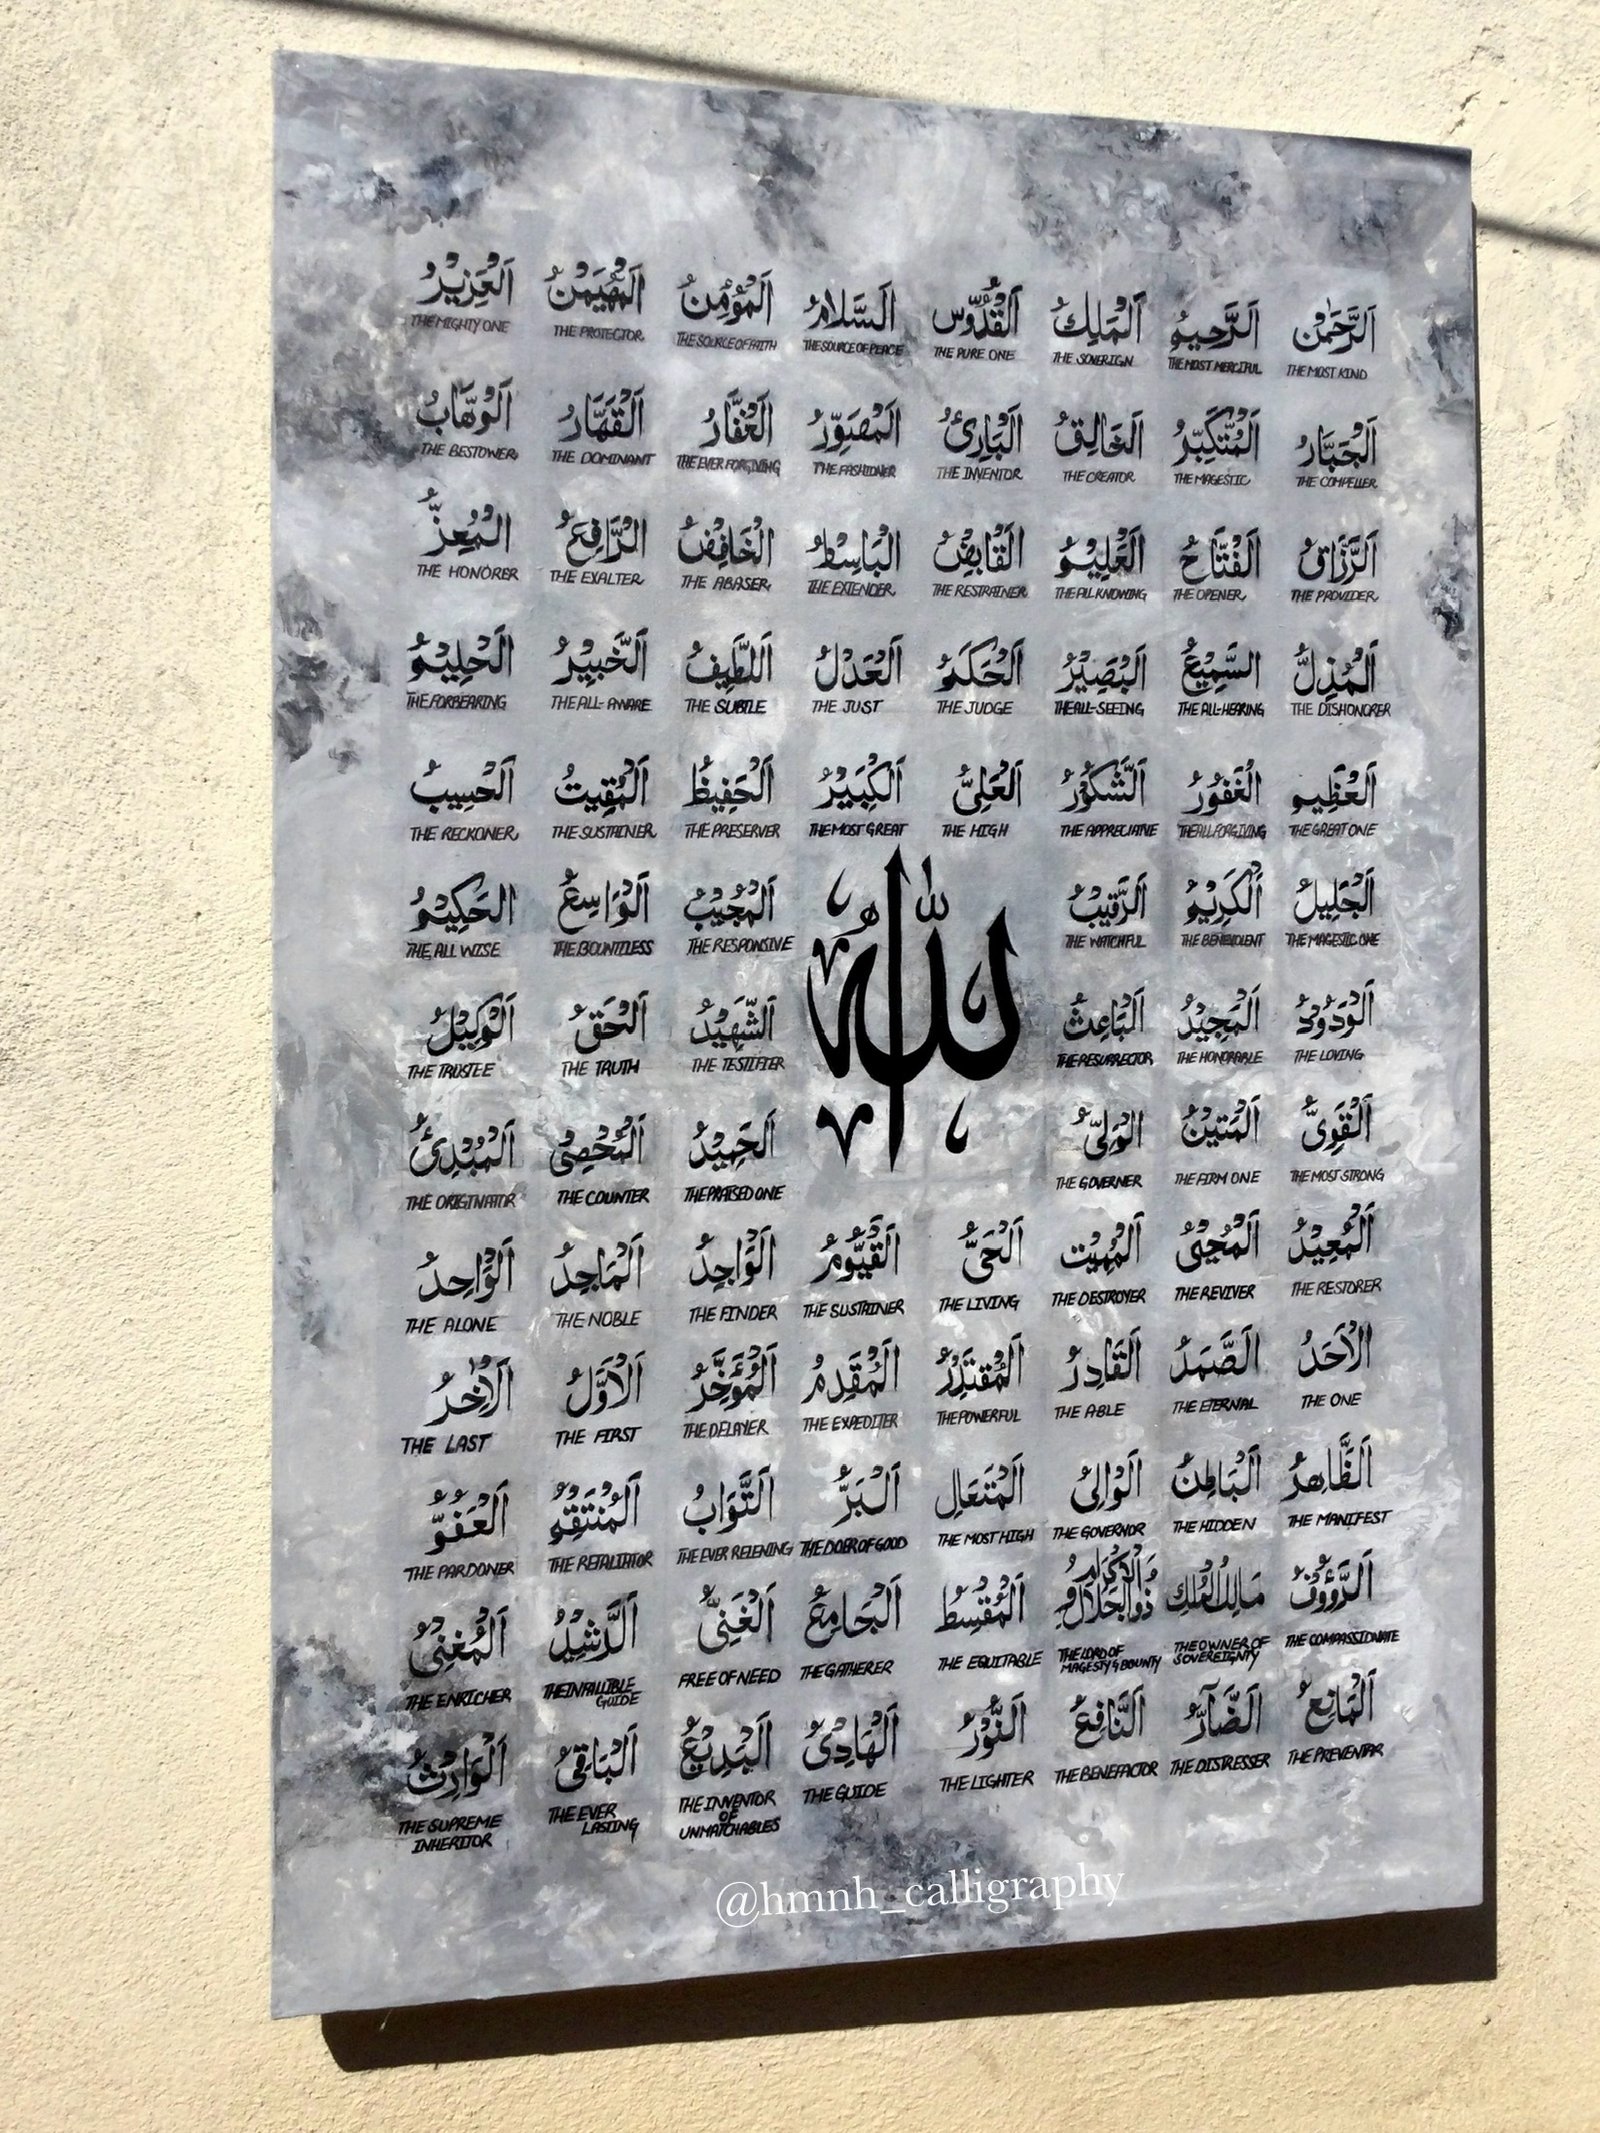 اَلرَّحْمٰنُ
THE MOST KIND
اَلرَّحِيمُ
THE MOST MERCIFUL
اَلْمَلِكُ
THE SOVERIGN
اَلْقُدُّوْسُ
THE PURE ONE
اَلسَّلَامُ
THE SOURCE OF PEACE
اَلْمُؤْمِنُ
THE SOURCE OF FAITH
اَلْمُهَيْمِنُ
THE PROTECTOR
اَلْعَزِيْزُ
THE MIGHTY ONE
اَلْجَبَّارُ
THE COMPELLER
اَلْمُتَكَبِّرُ
THE MAGESTIC
اَلْخَالِقُ
THE CREATOR
اَلْبَارِئُ
THE INVENTOR
اَلْمُصَوِّرُ
THE FASHIONER
اَلْغَفَّارُ
THE EVER FORGIVING
اَلْقَهَّارُ
THE DOMINANT
اَلْوَهَّابُ
THE BESTOWER
اَلرَّزَّاقُ
THE PROVIDER
اَلْفَتَّاحُ
THE OPENER
اَلْعَلِيْمُ
THE ALL KNOWING
اَلْقَابِضُ
THE RESTRAINER
اَلْبَاسِطُ
THE EXTENDER
اَلْخَافِضُ
THE ABASER
اَلرَّافِعُ
THE EXALTER
اَلْمُعِزُّ
THE HONORER
اَلْمُذِلُّ
THE DISHONORER
اَلسَّمِيْعُ
THE ALL-HEARING
اَلْبَصِيْرُ
THE ALL-SEEING
اَلْحَكَمُ
THE JUDGE
اَلْعَدْلُ
THE JUST
اَللَّطِيفُ
THE SUBTLE
اَلْخَبِيْرُ
THE ALL-AWARE
اَلْحَلِيْمُ
THE FORBEARING
اَلْعَظِيمُ
THE GREAT ONE
اَلْغَفُوْرُ
THE ALL FORGIVING
اَلشَّكُوْرُ
THE APPRECIATIVE
اَلْعَلِيُّ
THE HIGH
اَلْكَبِيْرُ
THE MOST GREAT
اَلْحَفِيظُ
THE PRESERVER
اَلْمُقِيتُ
THE SUSTAINER
اَلْحَسِيبُ
THE RECKONER
اَلْجَلِيلُ
THE MAGESTIC ONE
اَلْكَرِيْمُ
THE BENEVOLENT
اَلرَّقِيْبُ
THE WATCHFUL
الله
اَلْمُجِيْبُ
THE RESPONSIVE
اَلْوَاسِعُ
THE BOUNTLESS
اَلْحَكِيْمُ
THE ALL WISE
اَلْوَدُوْدُ
THE LOVING
اَلْمَجِيْدُ
THE HONORABLE
اَلْبَاعِثُ
THE RESURRECTOR
اَلشَّهِيْدُ
THE TESTIFIER
اَلْحَقُّ
THE TRUTH
اَلْوَكِيْلُ
THE TRUSTEE
اَلْقَوِيُّ
THE MOST STRONG
اَلْمَتِيْنُ
THE FIRM ONE
اَلْوَلِيُّ
THE GOVERNER
اَلْحَمِيْدُ
THE PRAISED ONE
اَلْمُحْصِيُ
THE COUNTER
اَلْمُبْدِئُ
THE ORIGINATOR
اَلْمُعِيْدُ
THE RESTORER
اَلْمُحْيِيُ
THE REVIVER
اَلْمُمِيْتُ
THE DESTROYER
اَلْحَيُّ
THE LIVING
اَلْقَيُّوْمُ
THE SUSTAINER
اَلْوَاجِدُ
THE FINDER
اَلْمَاجِدُ
THE NOBLE
اَلْوَاحِدُ
THE ALONE
اَلْاَحَدُ
THE ONE
اَلصَّمَدُ
THE ETERNAL
اَلْقَادِرُ
THE ABLE
اَلْمُقْتَدِرُ
THE POWERFUL
اَلْمُقَدِّمُ
THE EXPEDITER
اَلْمُؤَخِّرُ
THE DELAYER
اَلْاَوَّلُ
THE FIRST
اَلْاٰخِرُ
THE LAST
اَلظَّاهِرُ
THE MANIFEST
اَلْبَاطِنُ
THE HIDDEN
اَلْوَالِيُ
THE GOVERNOR
اَلْمُتَعَالِ
THE MOST HIGH
اَلْبَرُّ
THE DOER OF GOOD
اَلتَّوَابُ
THE EVER RELENING
اَلْمُنْتَقِمُ
THE RETALIATOR
اَلْعَفُوُّ
THE PARDONER
اَلرَّؤُوْفُ
THE COMPASSIONATE
مَالِكُ الْمُلْكِ
THE OWNER OF
SOVEREIGNTY
ذُوالْجَلَالِ وَ
الْاِكْرَامِ
THE LORD OF
MAGESTY & BOUNTY
اَلْمُقْسِطُ
THE EQUITABLE
اَلْجَامِعُ
THE GATHERER
اَلْغَنِيُّ
FREE OF NEED
اَلرَّشِيْدُ
THE INFALLIBLE
GUIDE
اَلْمُغْنِيُ
THE ENRICHER
اَلْمَانِعُ
THE PREVENTAR
اَلضَّآرُّ
THE DISTRESSER
اَلنَّافِعُ
THE BENEFACTOR
اَلنُّوْرُ
THE LIGHTER
اَلْهَادِيُ
THE GUIDE
اَلْبَدِيْعُ
THE INVENTOR
OF
UNMATCHABLES
اَلْبَاقِيُ
THE EVER
LASTING
اَلْوَارِثُ
THE SUPREME
INHERITOR
@hmnh_calligraphy